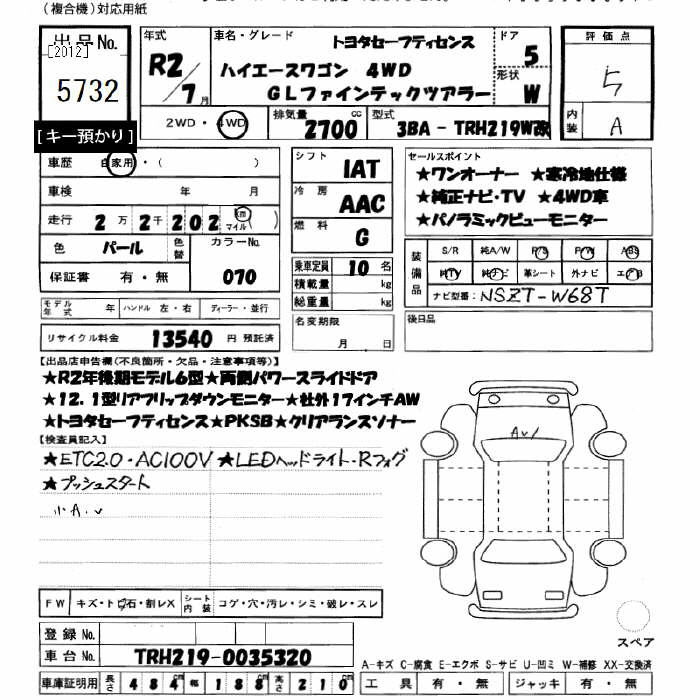 （複合機）対応用紙
出品No.
[2012]
5732
[キー預かり]
年式
R2/7月
車名・グレード
トヨタセーフティセンス
ハイエースワゴン 4WD
GLファインテックツアラー
ドア
5
形状
W
評価点
5
内装
A
2WD・4WD
排気量
2700cc
型式
3BA-TRH219W改
車歴 自家用・（ ）
車検 年 月
走行 2万2千202 km マイル（ ）
色 パール 色替 カラーNo.
保証書 有・無 070
シフト IAT
冷房 AAC
燃料 G
乗車定員 10 名
積載量 kg
総重量 kg
セールスポイント
★ワンオーナー ★寒冷地仕様
★純正ナビ・TV ★4WD車
★パノラミックビューモニター
装備品
S/R 純A/W P/S P/W ABS
純TV 純ナビ 革シート 外ナビ エアB
ナビ型番：NSZT-W68T
モデル年式 年 ハンドル 左・右 ディーラー・並行
リサイクル料金 13540 円 預託済
名変期限
月 日
後日品
【出品店申告欄（不良箇所・欠品・注意事項等）】
★R2年後期モデル6型★両側パワースライドドア
★12.1型リアフリップダウンモニター★社外17インチAW
★トヨタセーフティセンス★PKSB★クリアランスソナー
【検査員記入】
★ETC2.0・AC100V ★LEDヘッドライト・Rフォグ
★プッシュスタート
小A.v
AV1
FW キズ・トビ石・割レX シート内装 コゲ・穴・汚レ・シミ・破レ・スレ
登録No.
車台No. TRH219-0035320
スペア
A-キズ C-腐食 E-エクボ S-サビ U-凹ミ W-補修 XX-交換済
車庫証明用 長さ 484cm 幅 188cm 高さ 210cm
工具 有・無 ジャッキ 有・無